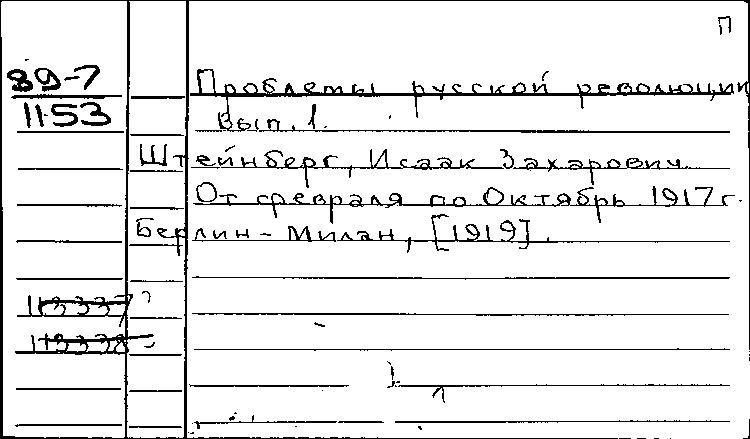 П
89-7
1153
Проблемы русской революции
Вып. 1.
Штейнберг, Исаак Захарович
От февраля по Октябрь 1917 г.
Берлин - Милан, [1919].
113337
113338